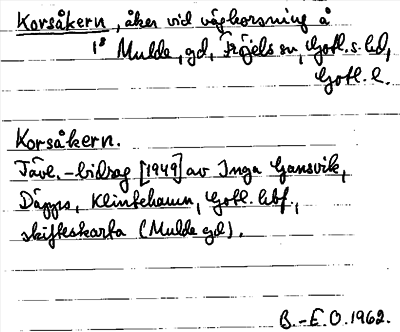 Korsåkern, åker vid vägkorsning å
1⁸ Mulde, gd, Fröjels sn, Gotl. s. hd,
Gotl. l.
Korsåkern.
Tävl.-bidrag [1949] av Inga Gansvik,
Däpps, Klintehamn, Gotl. hbf.,
skifteskarta (Mulde gd).
B.-E.O. 1962.